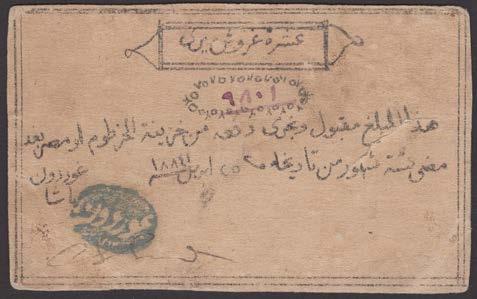 عشرة غروش
٩٨٠١
هذا المبلغ مقبول ويجرى دفعه من خزينة الخرطوم او مصر بعد
مضى ستة شهور من تاريخه ٢٥ ابريل ١٨٨٤
غوردون
باشا